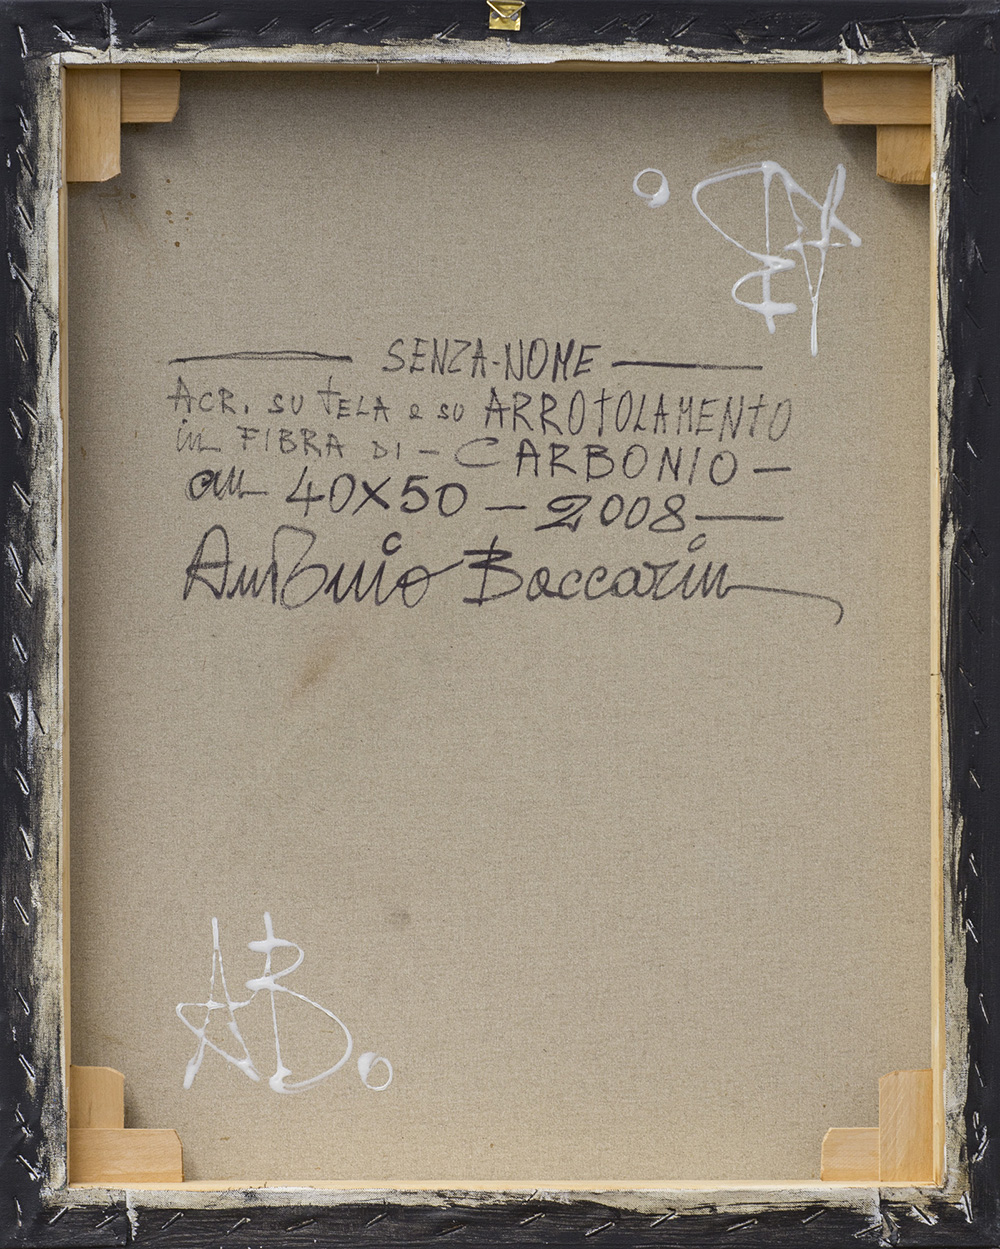 SENZA-NOME
ACR. SU TELA e SU ARROTOLAMENTO
in FIBRA DI - CARBONIO -
cm 40X50 - 2008 -
Antonio Boccarin
AB.
AB.